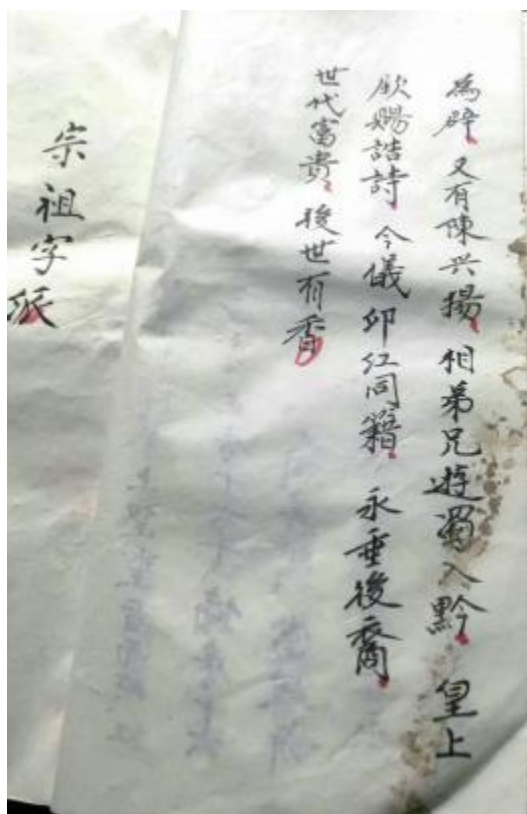 為辟又有陳兴揚相弟兄遊蜀入黔皇上
欽賜誥詩今儀卯红同籍永垂後裔
世代富贵後世有香
宗祖字派